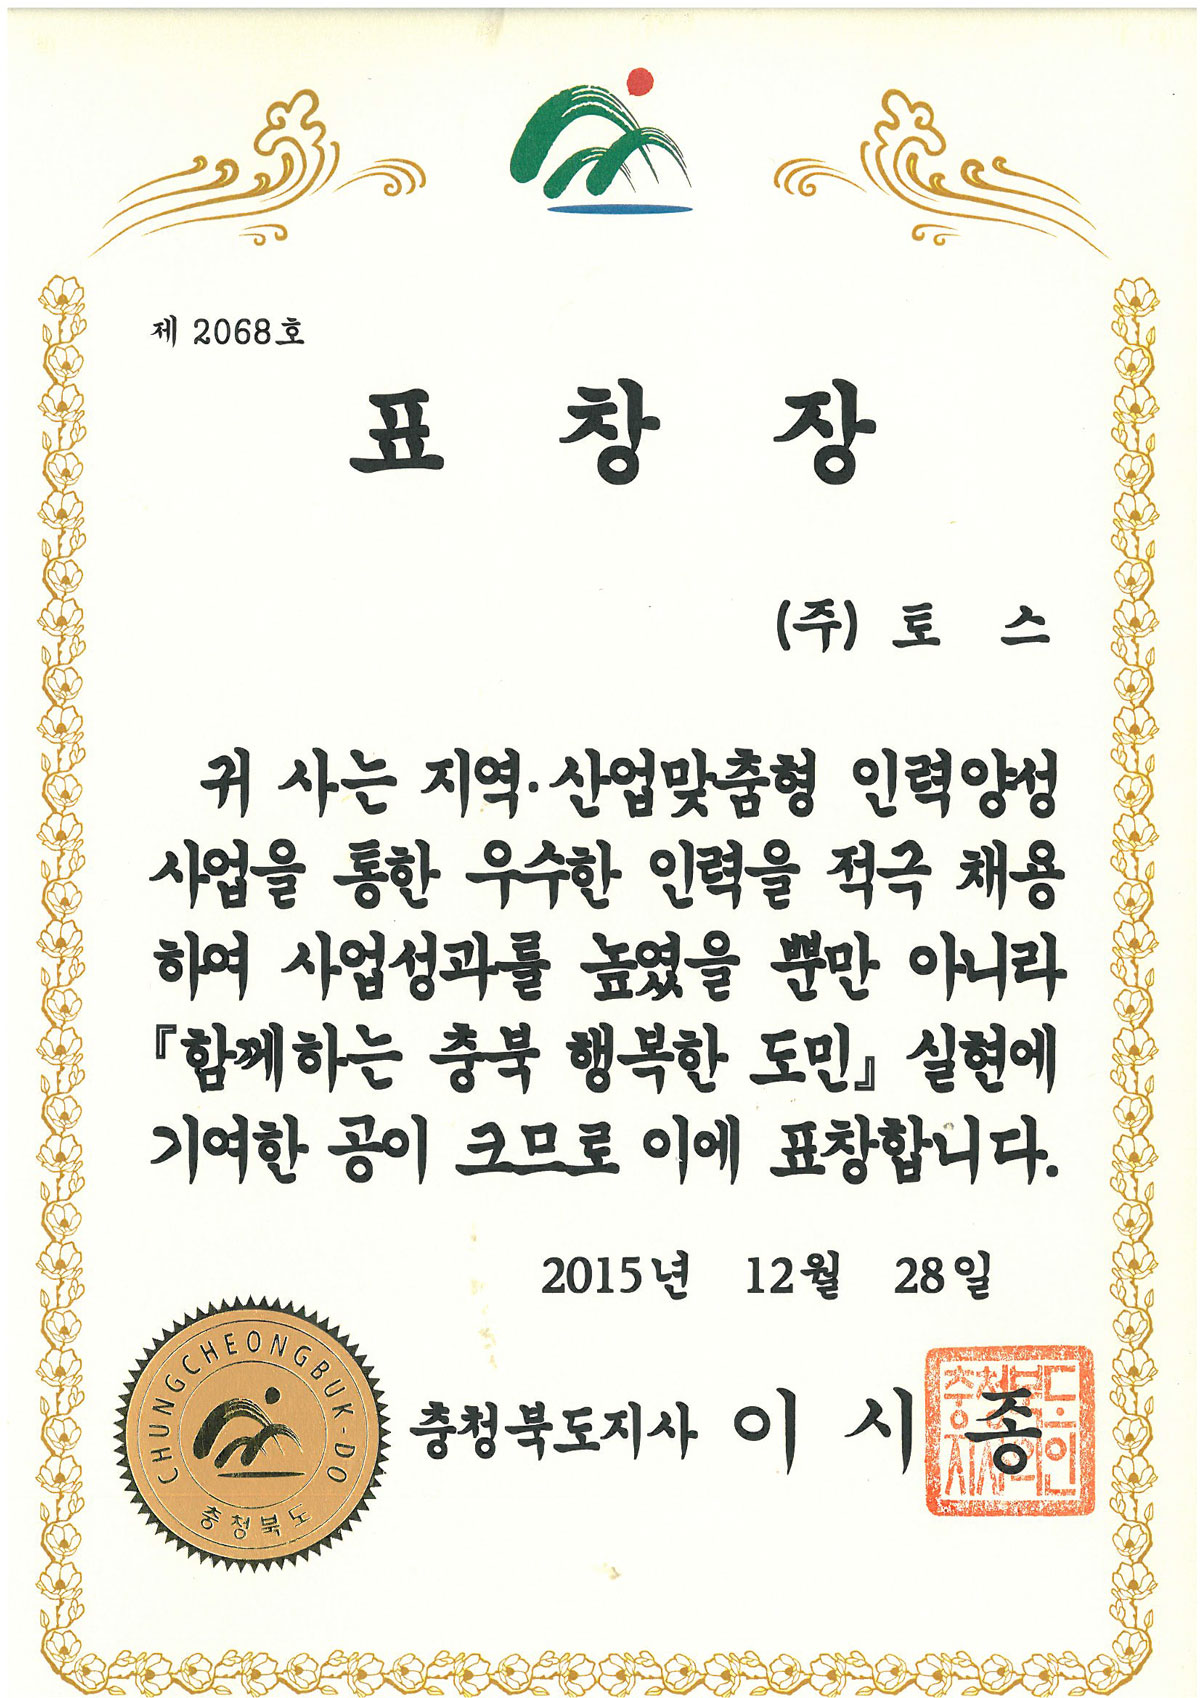 제 2068호
표 창 장
(주) 토 스
귀 사는 지역·산업맞춤형 인력양성
사업을 통한 우수한 인력을 적극 채용
하여 사업성과를 높였을 뿐만 아니라
『함께하는 충북 행복한 도민』 실현에
기여한 공이 크므로 이에 표창합니다.
2015년 12월 28일
충청북도지사 이 시 종
충청북도
지사의인
CHUNGCHEONGBUK-DO
충청북도